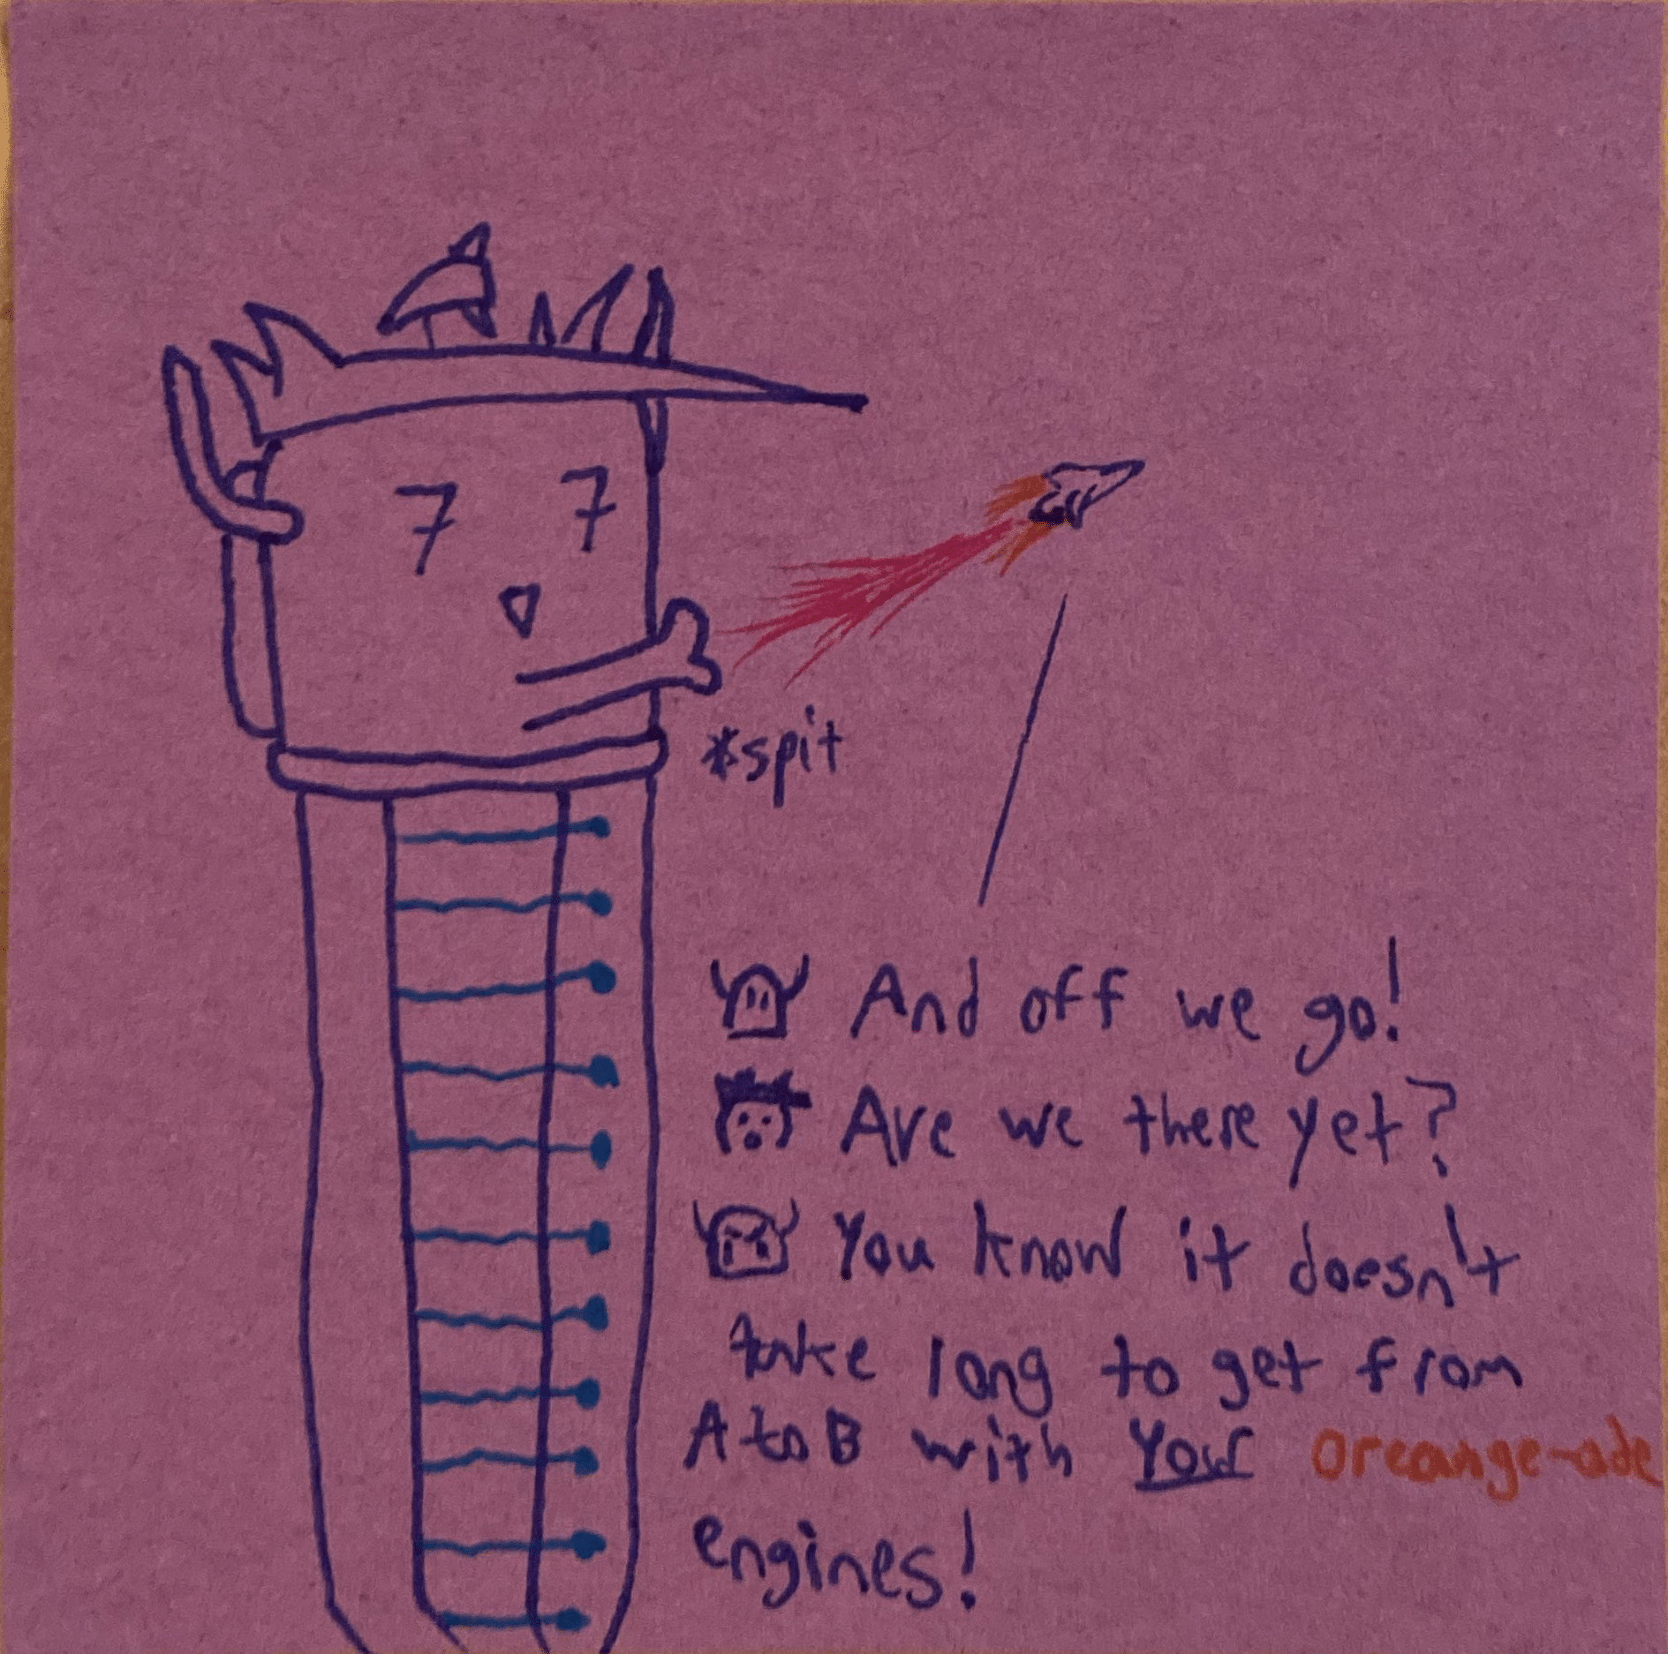 7 7
*spit
And off we go!
Are we there yet?
You know it doesn't
take long to get from
A to B with your oreange-ade
engines!